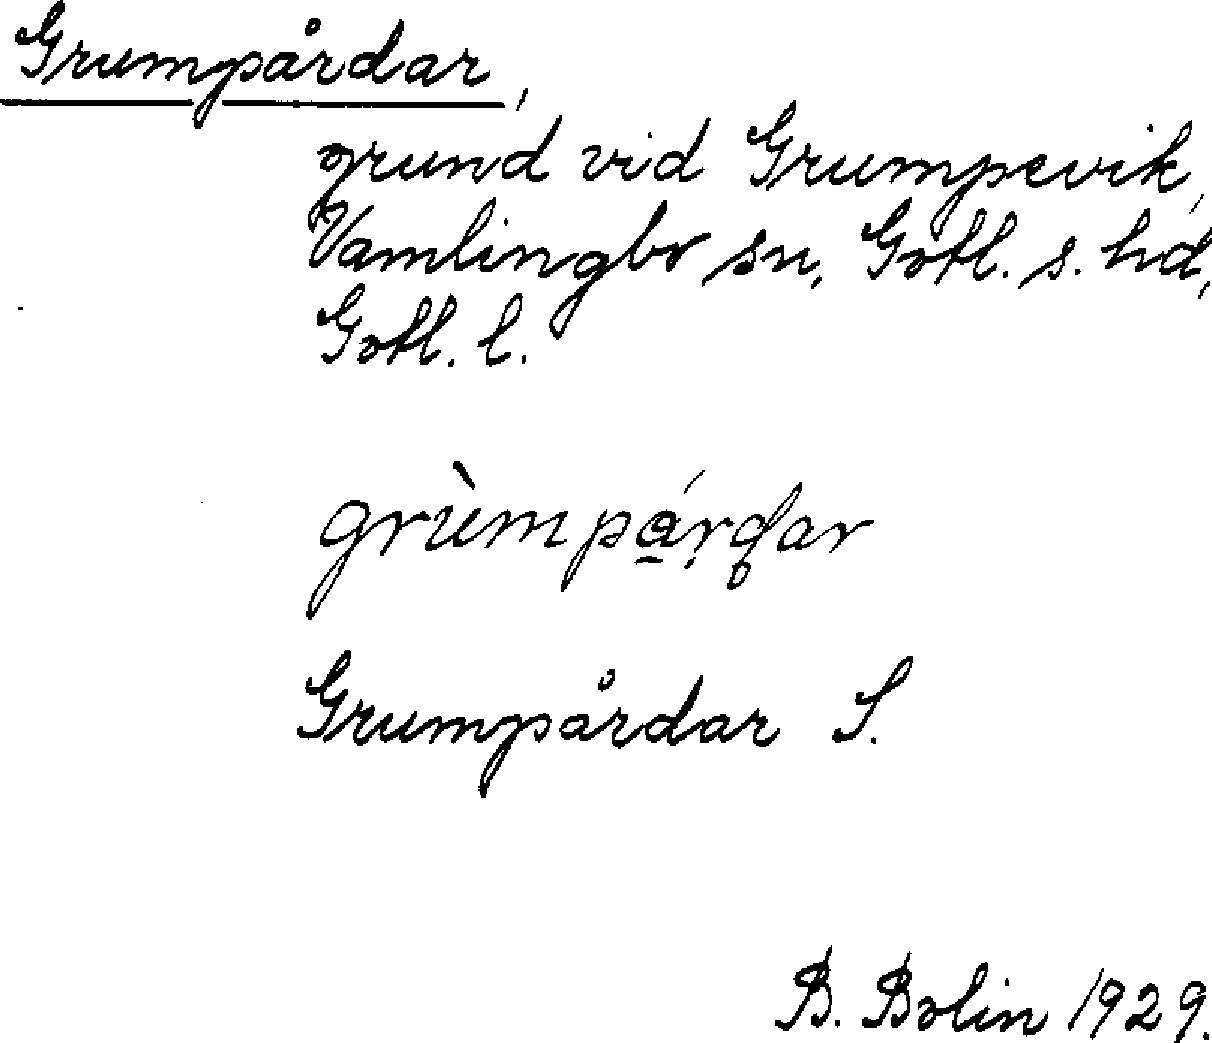 Grumpårdar,
grund vid Grumpevik,
Vamlingbo sn, Gotl. s. hd,
Gotl. l.
grùmpá̱rdar
Grumpårdar S.
B. Bolin 1929.